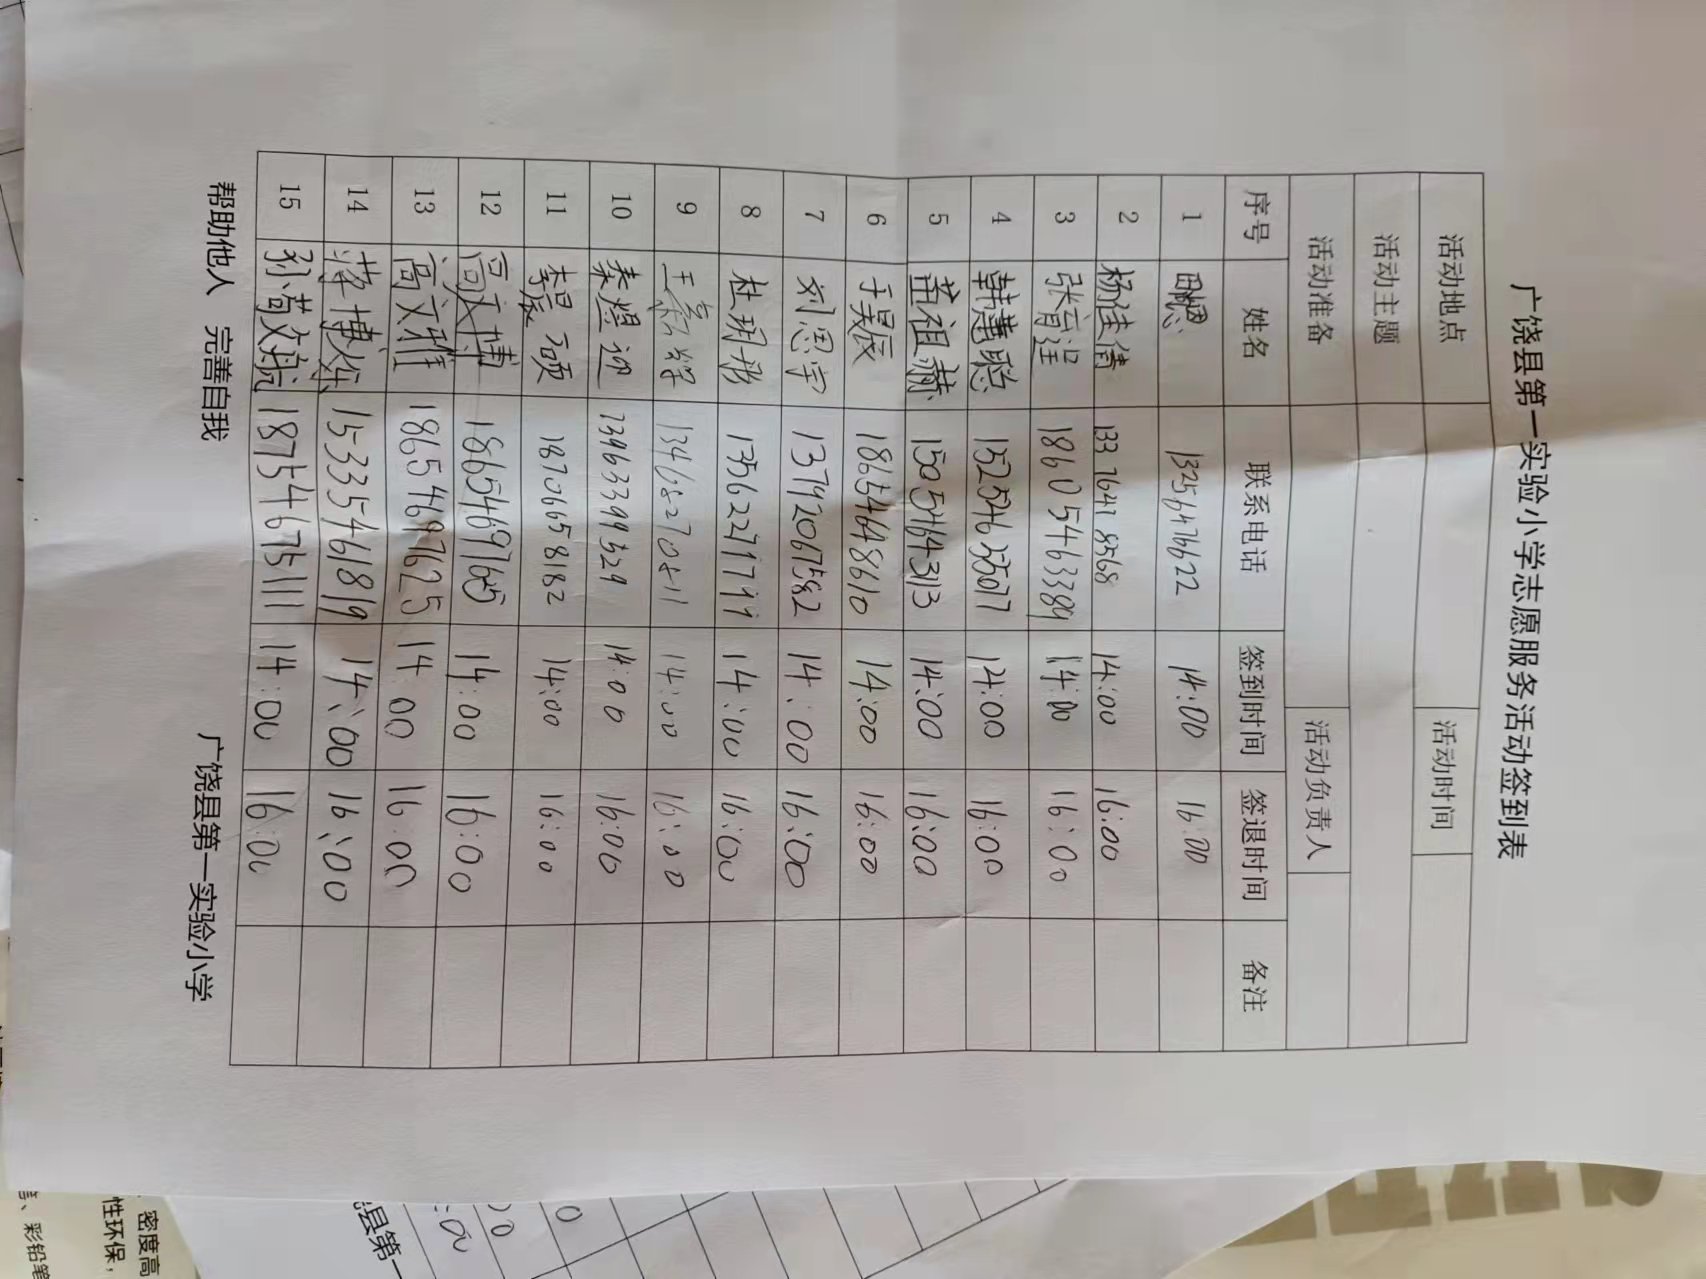 广饶县第一实验小学志愿服务活动签到表
活动地点 活动时间
活动主题
活动准备 活动负责人
序号 姓名 联系电话 签到时间 签退时间 备注
1 13256476622 14:00 16:00
2 杨佳倩 133 7641 8568 14:00 16:00
3 18605463389 14:00 16:00
4 韩慧聪 15254635077 14:00 16:00
5 董祖赫 15054643113 14:00 16:00
6 于昊辰 18654648610 14:00 16:00
7 刘思宇 13792067582 14:00 16:00
8 杜玥彤 14:00 16:00
9 14:00 16:00
10 秦煜迎 14:00 16:00
11 李晨硕 18706658182 14:00 16:00
12 高文博 18654697625 14:00 16:00
13 高文雅 18654697625 14:00 16:00
14 蒋博乐 15335461819 14:00 16:00
15 孙菊文航 18754675111 14:00 16:00
帮助他人 完善自我 广饶县第一实验小学
县第一
密度高
性环保，
、彩铅笔